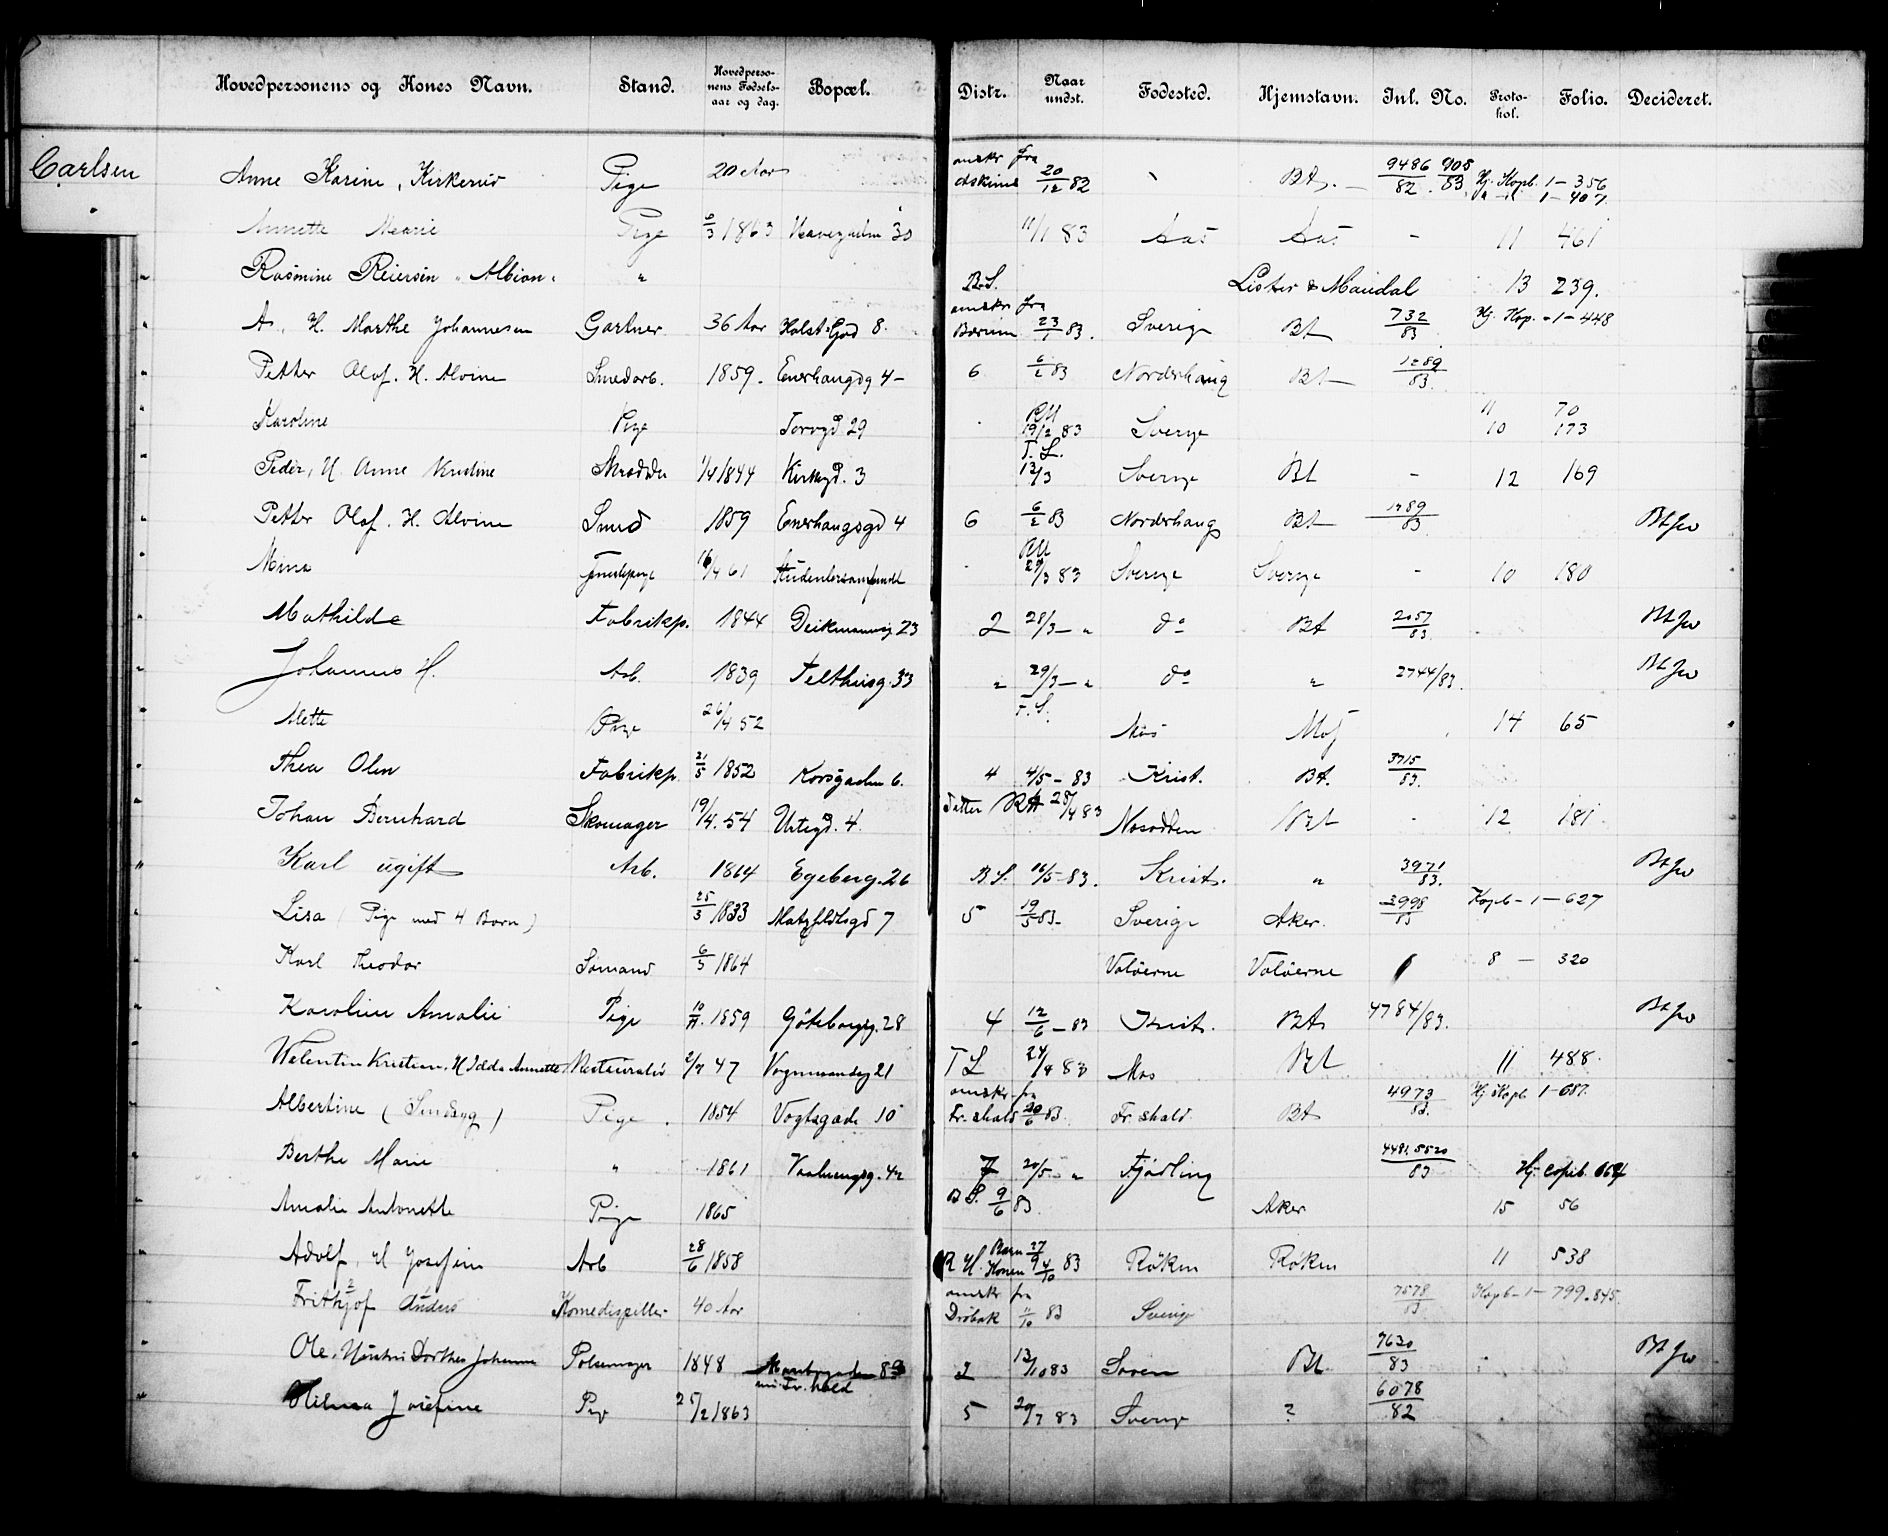 Hovedpersonens og Kones Navn. Stand. Hovedpersonens Fødselsaar og dag. Bopæl. Distr. Naar undst. Fødested. Hjemstavn. Inl. No. Protokol. Folio. Decideret.
Carlsen
Anne Karine, Kirkerud Pige 20 Aar omskr fra Askim 20/12 82 Bt. 9486/82 Hj. Kopb. 1-356 1-407
Annette Marie Pige 1863 30 11/1 83 Aas Aas - 11 461
Rasmine Reiersen "Albion" " B.S. Lister & Mandal 13 239.
A. H. Marthe Johannesen Gartner 36 Aar Holst Gd 8. omskr fra Bærum 23/1 83. Sverige Bt 732/83 Hj. Kop. -1-448
Petter Olof. H. Alvine Smedarb. 1859. Enerhaugdg 4- 6 6/2 83 Norderhaug Bt 1289/83.
Karoline Pige Torvgd 29 RM 19/2 83 Sverge 11 10 70 173
Peder, H. Anne Kristine Skrædder 1/4 1844 Kirkegd. 3 T.L. 13/3 Sverge Bt - 12 169
Petter Olof. H. Alvine Smed 1859 Enerhaugsgd 4 6 6/2 83 Norderhaug Bt 1289/83 Bt fw
Mina Tjenestepige 16/4 61 Studentersamfundet RM 29/3 83 Sverge Sverge - 10 180
Mathilde Fabrikp. 1844 Deikmansvg 23 2 28/3 - " do Bt 2057/83 Bt fw
Johannes H. Arb. 1839 Telthusg. 33 " 29/3 - " do " 2744/83. Bt fw
Mette Pige 26/4 52 T.S. Mos Mos 14 65
Thea Olen Fabrikp. 21/5 1852 Korsgaden 6. 4 4/5 - 83 Krist. Bt. 3715/83.
Johan Bernhard Skomager 19/4. 54 Urtegd. 4. Datter RH 28/4 83 Nesodden Bt - 12 181.
Karl ugift Arb. 1864 Egeberg. 26 B.S. 16/5 - 83. Krist. " 3971/83. Bt fw
Lisa (Pige med 4 Børn) 25/3 1833 7 5 19/5 83- Sverige Aker. 2998/83 Kopb-1-627
Karl Theodor Sømand 6/5 1864 Valøerne Valøerne 8 - 320
Karoline Amalie Pige 1859 Göteborgg. 28 4 12/6 - 83 Krist. Bt 4784/83. Bt fw
Welentin Kristian, H Idda Annette. Restauratør 2/7 47 Vognmandsg 21 T L 24/4 83 Mos Bt 11 488.
Albertine (Sindsyg) Pige. 1854 Vogtsgade 10 omskr fra Fr. shald 20/6 83. Fr. shald. Bt 4973/83. Hj Kopb. 1-687.
Berthe Marie " 1861 Vaalerengsg. 42 7 20/5 - " Fjärding 4481. 5520/83 Hj. copib. 664
Amalie Antonette Pige 1865 B.S. 9/6 83. Aker 15 56
Adolf, H Josefine Arb 28/6 1858 R H. Barn 27/9 Konen 4/10 83 Røken Røken 11 538
Frithjof Anders Komediespiller 40 Aar omskr fra Drøbak 11/10 83 Sverige 7578/83 Kopb-1-799.845.
Ole, Hustru Dorthea Johanne Pølsemager 1848 8 nu Fr. hald 2 13/10 83 Soren Bt 7630/83 Bt fw
Hilma Josefine Pige 25/2 1863 5 20/7 83 Sverge ? 6078/82